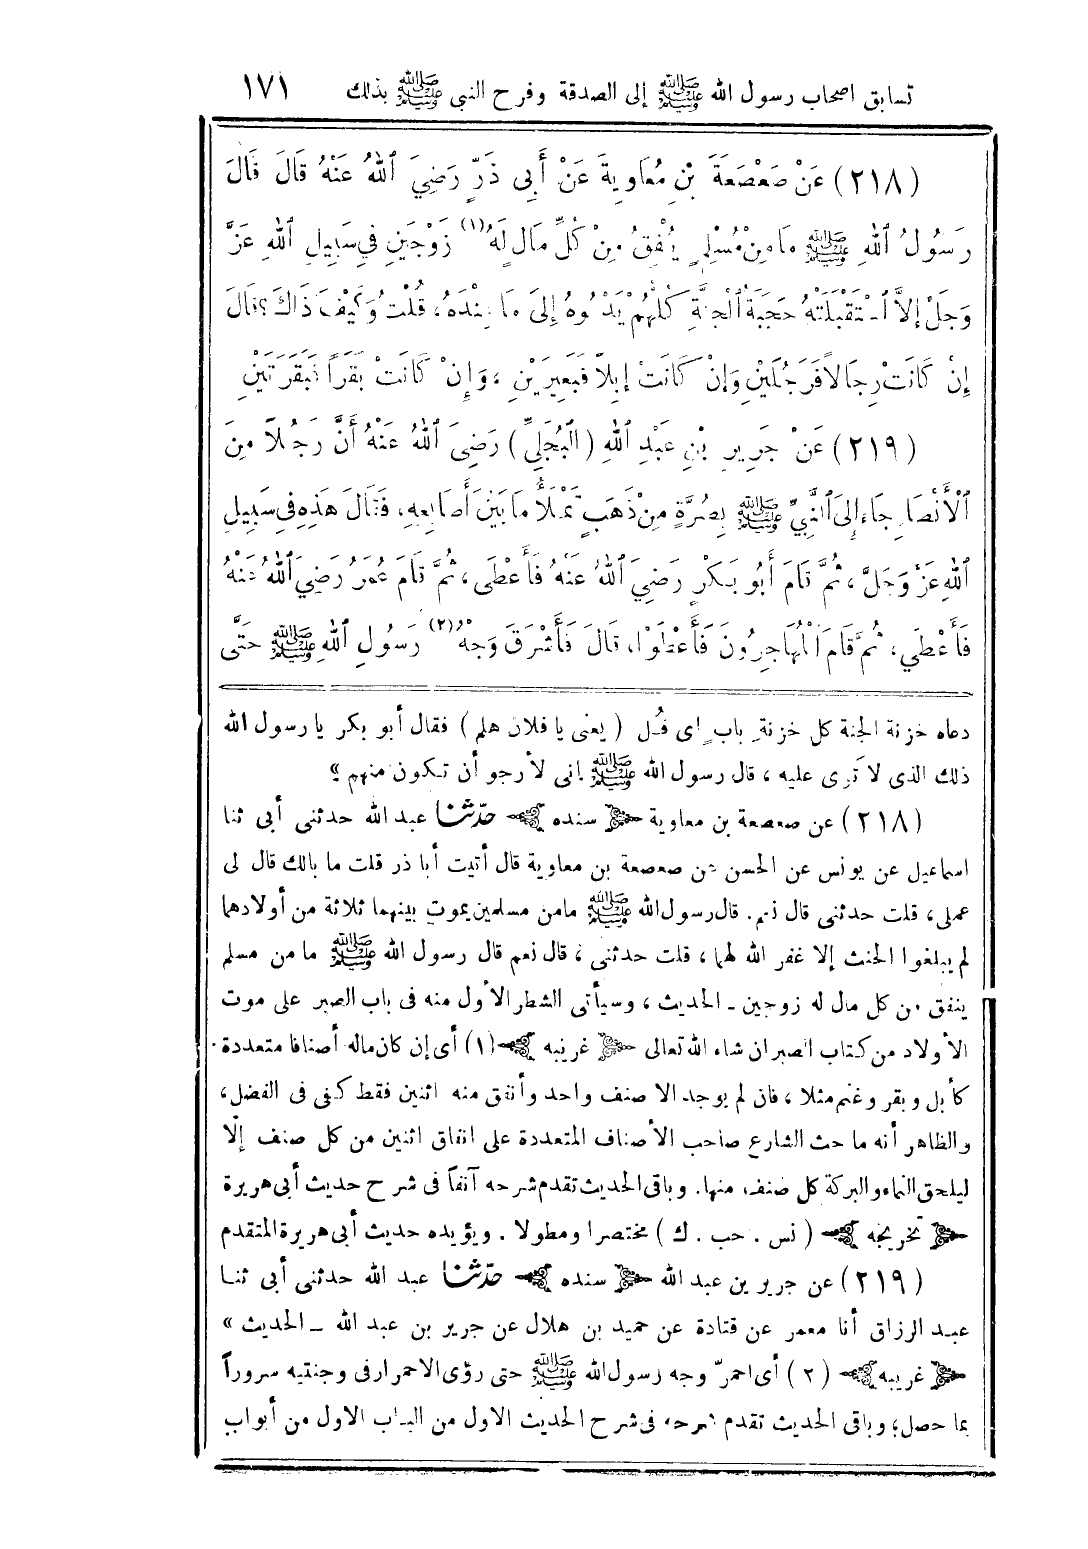 تسابق اصحاب رسول الله ﷺ إلى الصدقة وفرح النبى ﷺ بذلك ١٧١
(٢١٨) عَنْ صَعْصَعَةَ بْنِ مُعَاوِيةَ عَنْ أَبِى ذَرٍّ رَضِيَ اللهُ عَنْهُ قَالَ قَالَ
رَسُولُ اللهِ ﷺ مَامِنْ مُسْلِمٍ يُنْفِقُ مِنْ كُلِّ مَالٍ لَهُ (١) زَوْجَينِ فِي سَبِيلِ اللهِ عَزَّ
وَجَلَّ إِلاَّ اسْتَقْبَلَتْهُ حَجَبَةُ الْجَنَّةِ كُلُّهُمْ يَدْعُوهُ إِلَى مَا عِنْدَهُ، قُلْتُ وَكَيْفَ ذَاكَ؟ قَالَ
إِنْ كَانَتْ رِجَالاً فَرَجُلَيْنِ وَإِنْ كَانَتْ إِبِلاً فَبَعِيرَيْنِ ، وَإِنْ كَانَتْ بَقَراً فَبَقَرَتَيْنِ
(٢١٩) عَنْ جَرِيرِ بْنِ عَبْدِ اللهِ (الْبُجَلِيِّ) رَضِيَ اللهُ عَنْهُ أَنَّ رَجُلاً مِنَ
الْأَنْصَارِ جَاءَ إِلَى النَّبِيِّ ﷺ بِصُرَّةٍ مِنْ ذَهَبٍ تَمْلَأُ مَا بَيْنَ أَصَابِعِهِ، فَقَالَ هَذِهِ فِي سَبِيلِ
اللهِ عَزَّ وَجَلَّ ، ثُمَّ قَامَ أَبُو بَكْرٍ رَضِيَ اللهُ عَنْهُ فَأَعْطَى، ثُمَّ قَامَ عُمَرُ رَضِيَ اللهُ عَنْهُ
فَأَعْطَي، ثُمَّ قَامَ الْمُهَاجِرُونَ فَأَعْطَوْا، قَالَ فَأَشْرَقَ وَجْهُ (٢) رَسُولِ اللهِ ﷺ حَتَّى
دعاه خزنة الجنة كل خزنةِ بابٍ اى فُل ( يعنى يا فلان هلم ) فقال أبو بكر يا رسول الله
ذلك الذى لا تَوى عليه ، قال رسول الله ﷺ إنى لأرجو أن تكون منهم »
(٢١٨) عن صعصعة بن معاوية سنده حدّثنا عبد الله حدثنى أبى ثنا
اسماعيل عن يونس عن الحسن عن صعصعة بن معاوية قال أتيت أبا ذر قلت ما بالك قال لى
عملى، قلت حدثنى قال نعم. قال رسول الله ﷺ مامن مسلمين يموت بينهما ثلاثة من أولادهما
لم يبلغوا الحنث إلا غفر الله لهما ، قلت حدثنى ، قال نعم قال رسول الله ﷺ ما من مسلم
ينفق من كل مال له زوجين ـ الحديث ، وسيأتى الشطر الأول منه فى باب الصبر على موت
الأولاد من كتاب الصبر ان شاء الله تعالى غريبه (١) أى إن كان ماله أصنافا متعددة
كأبل وبقر وغنم مثلا ، فان لم يوجد الا صنف واحد وأنفق منه اثنين فقط كفى فى الفضل،
والظاهر أنه ما حث الشارع صاحب الأصناف المتعددة على انفاق اثنين من كل صنف إلّا
ليلحق النماء والبركة كل صنف منها. وباقى الحديث تقدم شرحه آنفاً فى شرح حديث أبى هريرة
تخريجه ( نس . حب . ك ) مختصرا ومطولا . ويؤيده حديث أبى هريرة المتقدم
(٢١٩) عن جرير بن عبد الله سنده حدّثنا عبد الله حدثنى أبى ثنا
عبد الرزاق أنا معمر عن قتادة عن حميد بن هلال عن جرير بن عبد الله ـ الحديث »
غريبه ( ٢ ) أى احمرّ وجه رسول الله ﷺ حتى رؤى الاحمرار فى وجنتيه سروراً
بما حصل؛ وباقى الحديث تقدم شرحه فى شرح الحديث الاول من الباب الاول من أبواب